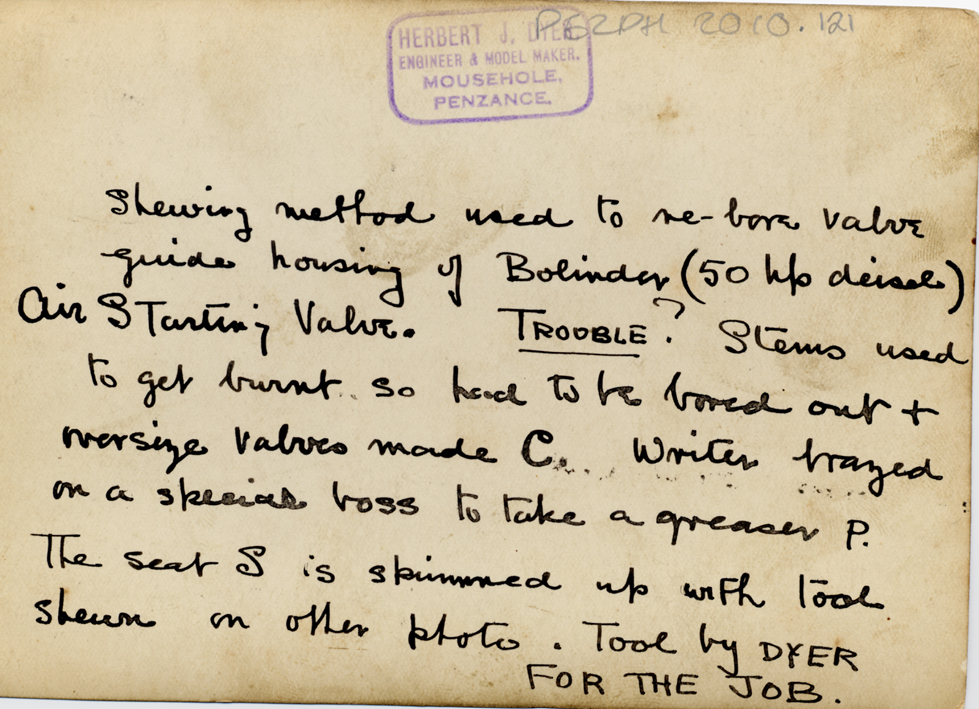 PEZPH 2010.121
HERBERT J. DYER
ENGINEER & MODEL MAKER.
MOUSEHOLE,
PENZANCE.
Shewing method used to re-bore valve
guide housing of Bolinder (50 hp deisel)
Air Starting Valve. TROUBLE? Stems used
to get burnt so had to be bored out +
oversize valves made C. Writer brazed
on a special boss to take a greaser P.
The seat S is skimmed up with tool
shewn on other photo. Tool by DYER
FOR THE JOB.